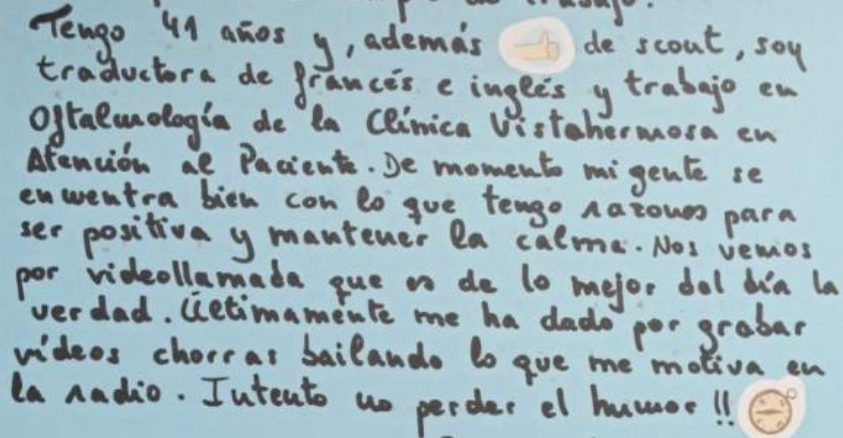 trabajo.
Tengo 41 años y, además de scout, soy
traductora de francés e inglés y trabajo en
Oftalmología de la Clínica Vistahermosa en
Atención al Paciente. De momento mi gente se
encuentra bien con lo que tengo razones para
ser positiva y mantener la calma. Nos vemos
por videollamada que es de lo mejor del día la
verdad. Últimamente me ha dado por grabar
vídeos chorras bailando lo que me motiva en
la radio. Intento no perder el humor!!